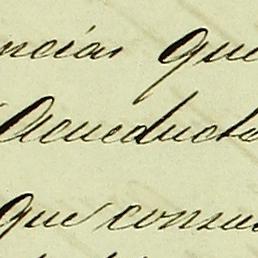 ncias que
Acueducto
que consu